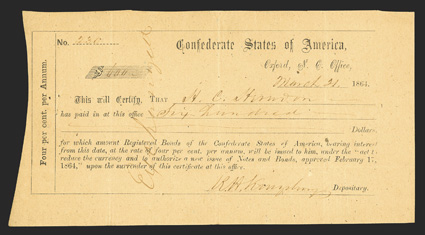 Four per cent. per Annum.
No. 220
Confederate States of America,
Oxford, N. C. Office,
$600
March 21. 1864.
This will Certify, THAT H. C.
has paid in at this office Six hundred
Dollars,
for which amount Registered Bonds of the Confederate States of America, bearing interest
from this date, at the rate of four per cent. per annum, will be issued to him, under the "act to
reduce the currency and to authorize a new issue of Notes and Bonds, approved February 17,
1864," upon the surrender of this certificate at this office.
Depositary.